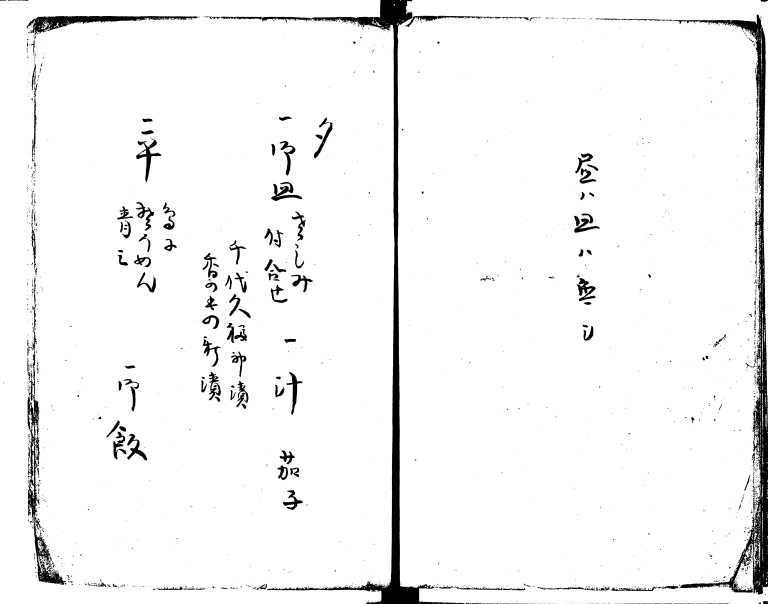 昼ハ皿ハ無シ
夕
一御皿 さしみ
付合せ
一汁 茄子
千代久 福神漬
香の物 新漬
一平 玉子
そうめん
青三
一御飯